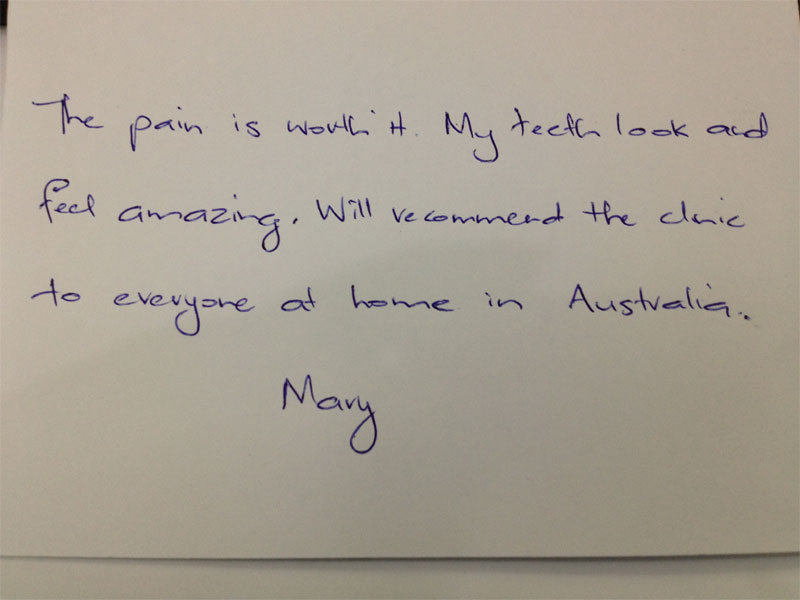 The pain is worth it. My teeth look and
feel amazing. Will recommend the clinic
to everyone at home in Australia.
Mary